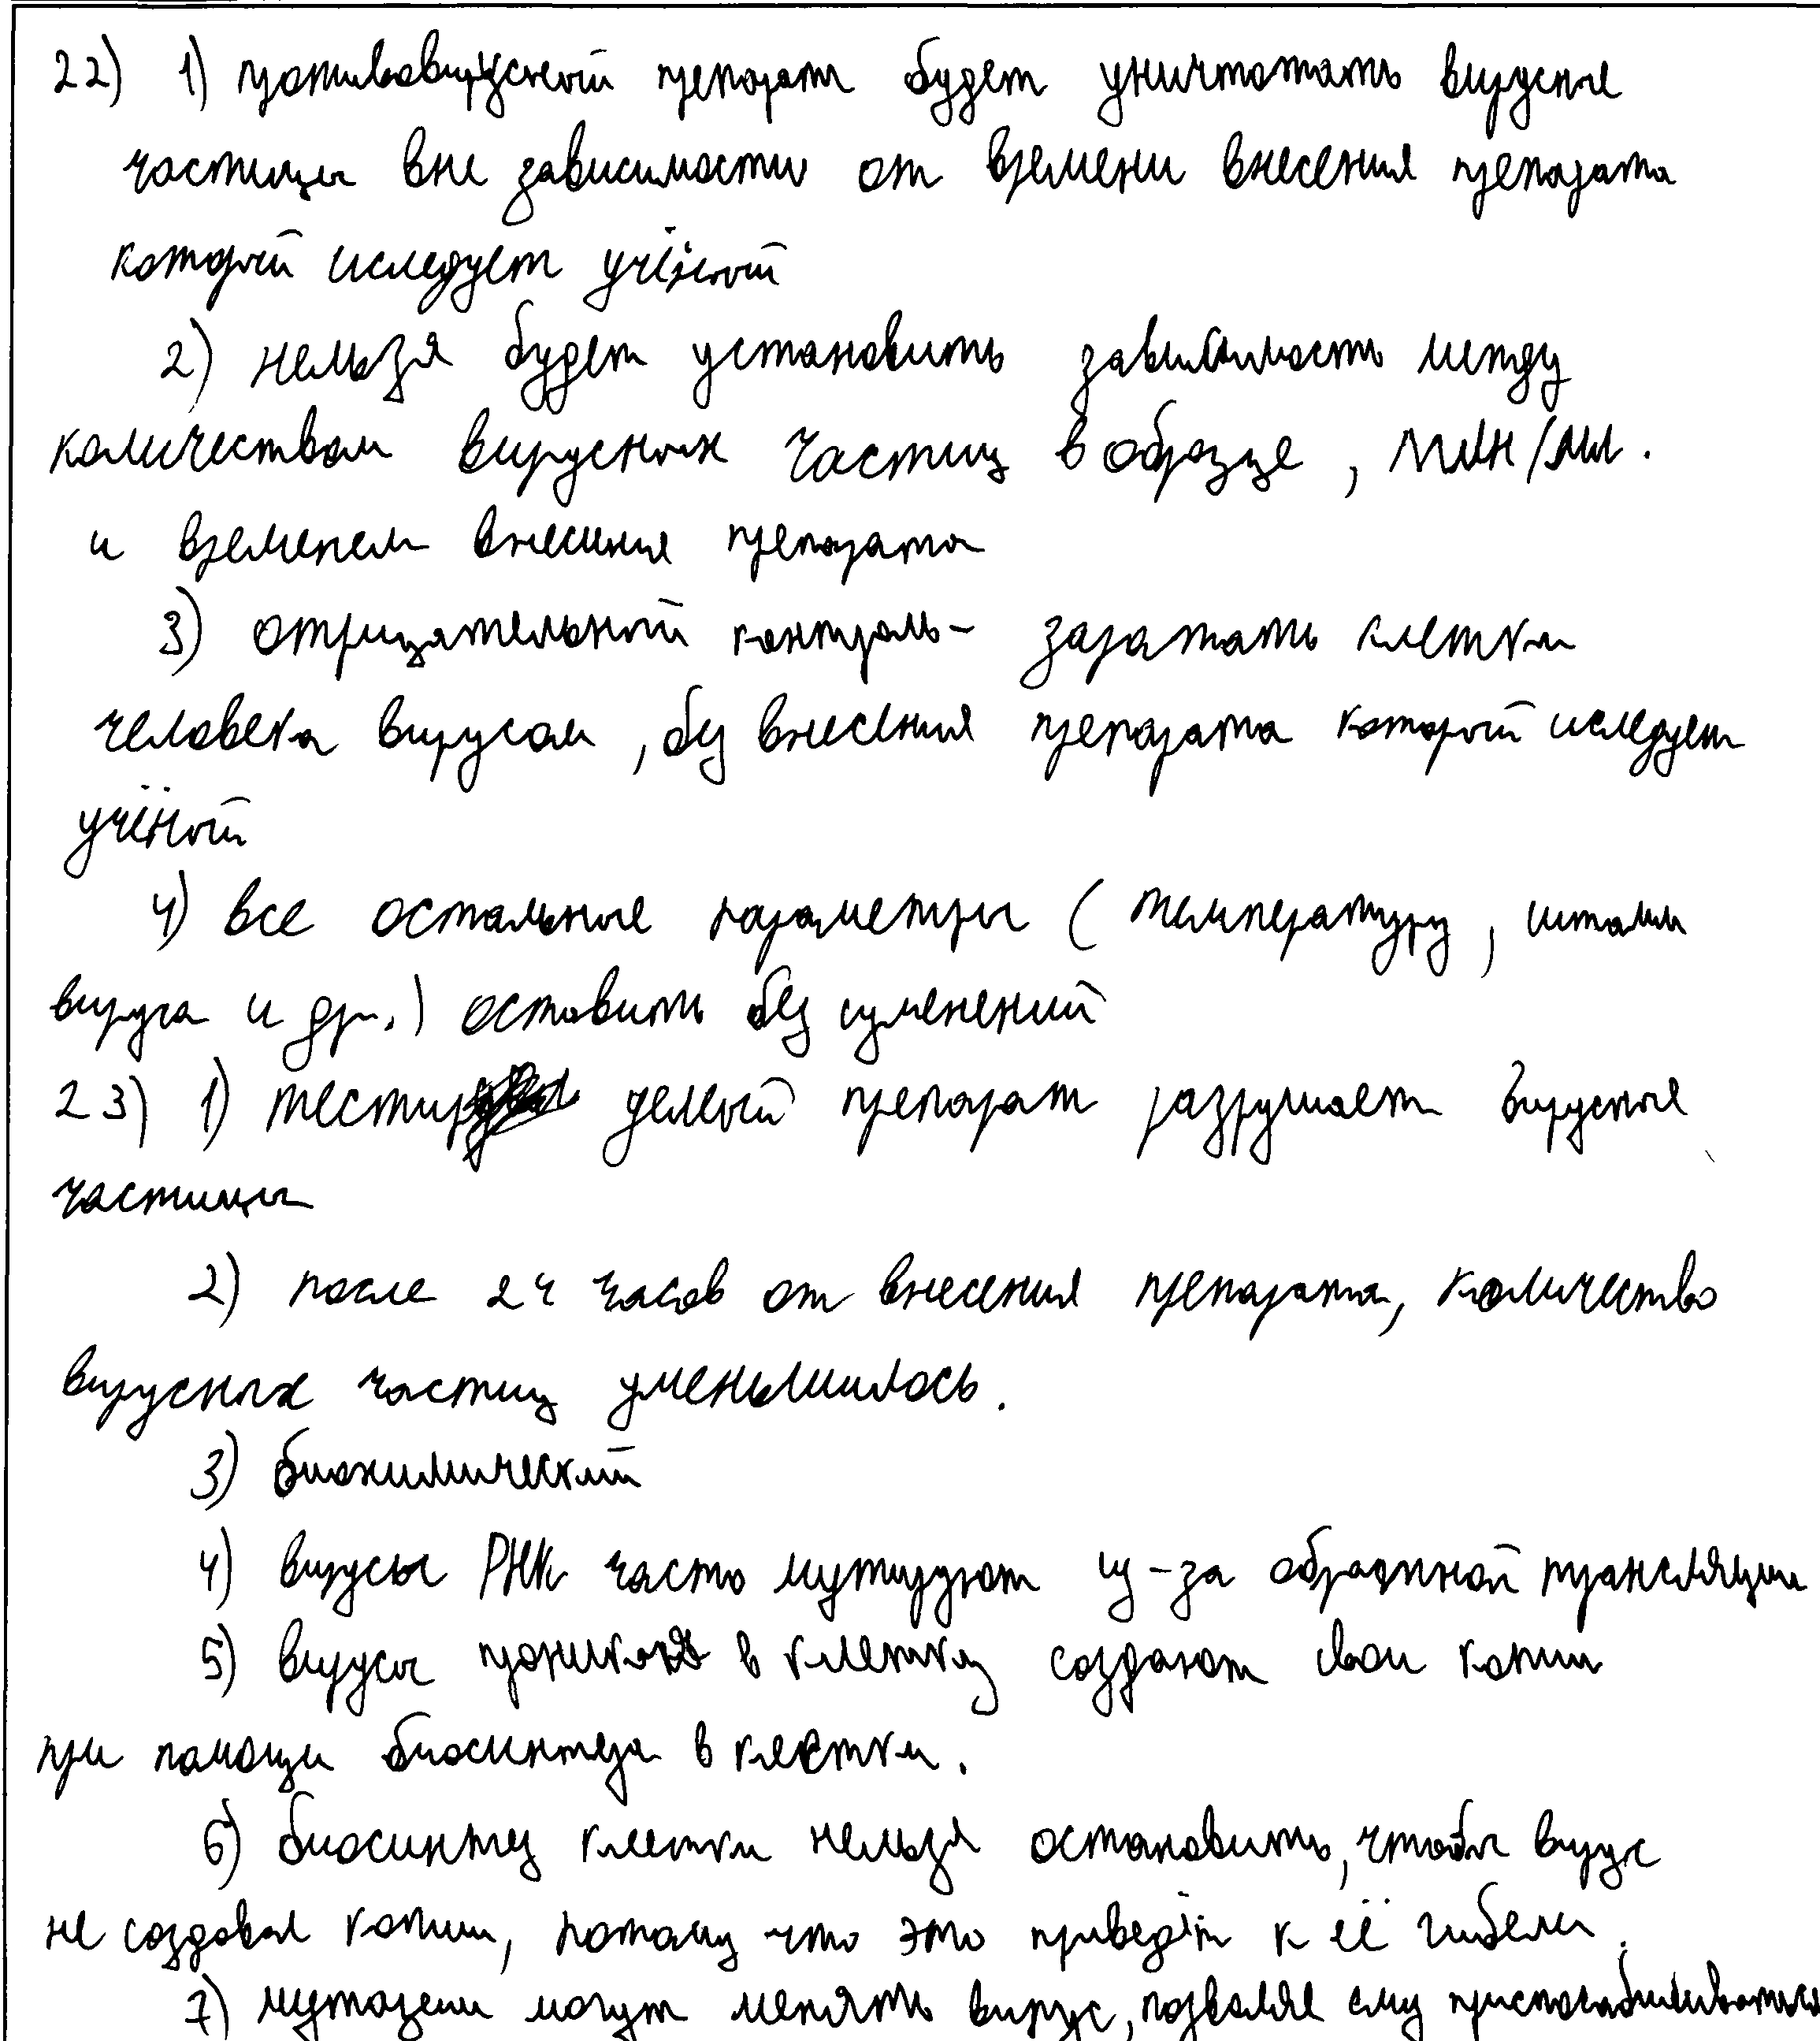 22) 1) противовирусный препарат будет уничтожать вирусные
частицы вне зависимости от времени внесения препарата
который иследует учёный
2) нельзя будет установить зависимость между
количеством вирусных частиц в образце, млн/мл.
и временем внесения препарата
3) отрицательный контроль - заражать клетки
человека вирусом, без внесения препарата который иследует
учёный
4) все остальные параметры (температуру, штамм
вируса и др.) оставить без изменений
23) 1) тестируемый препарат разрушает вирусные
частицы
2) после 24 часов от внесения препарата, количество
вирусных частиц уменьшилось.
3) биохимический
4) вирусы РНК часто мутируют из-за обратной трансляции
5) вирусы проникая в клетку создают свои копии
при помощи биосинтеза в клетки.
6) биосинтез клетки нельзя остановить, чтобы вирус
не создавал копии, потому что это приведёт к её гибели.
7) мутации могут менять вирус, позволяе ему приспосабливаться